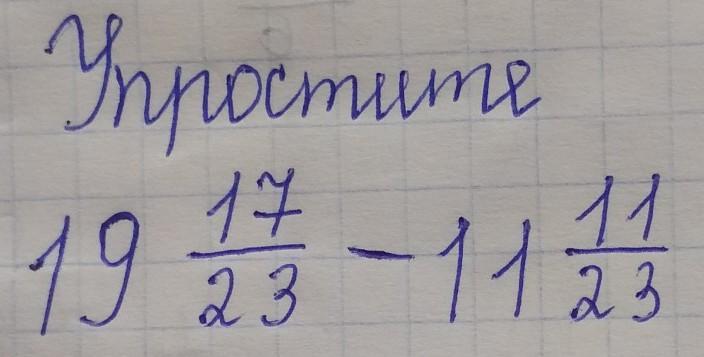 Упростите
19 17/23 - 11 11/23